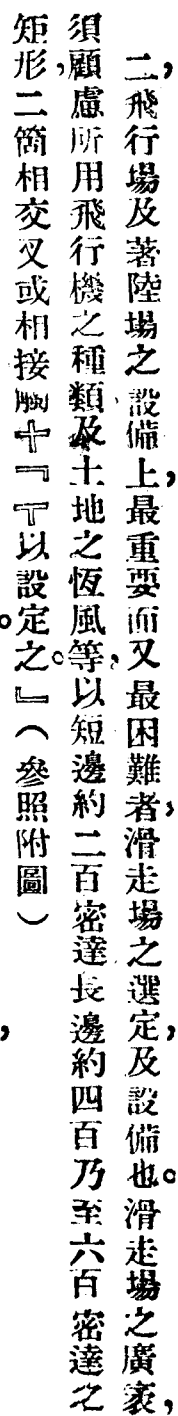 二，飛行場及著陸場之設備上，最重要而又最困難者，滑走場之選定，及設備也。滑走場之廣袤，
須顧慮所用飛行機之種類及土地之恆風等，以短邊約二百密達長邊約四百乃至六百密達之
矩形，二箇相交叉或相接觸十『丅以設定之。』（參照附圖），